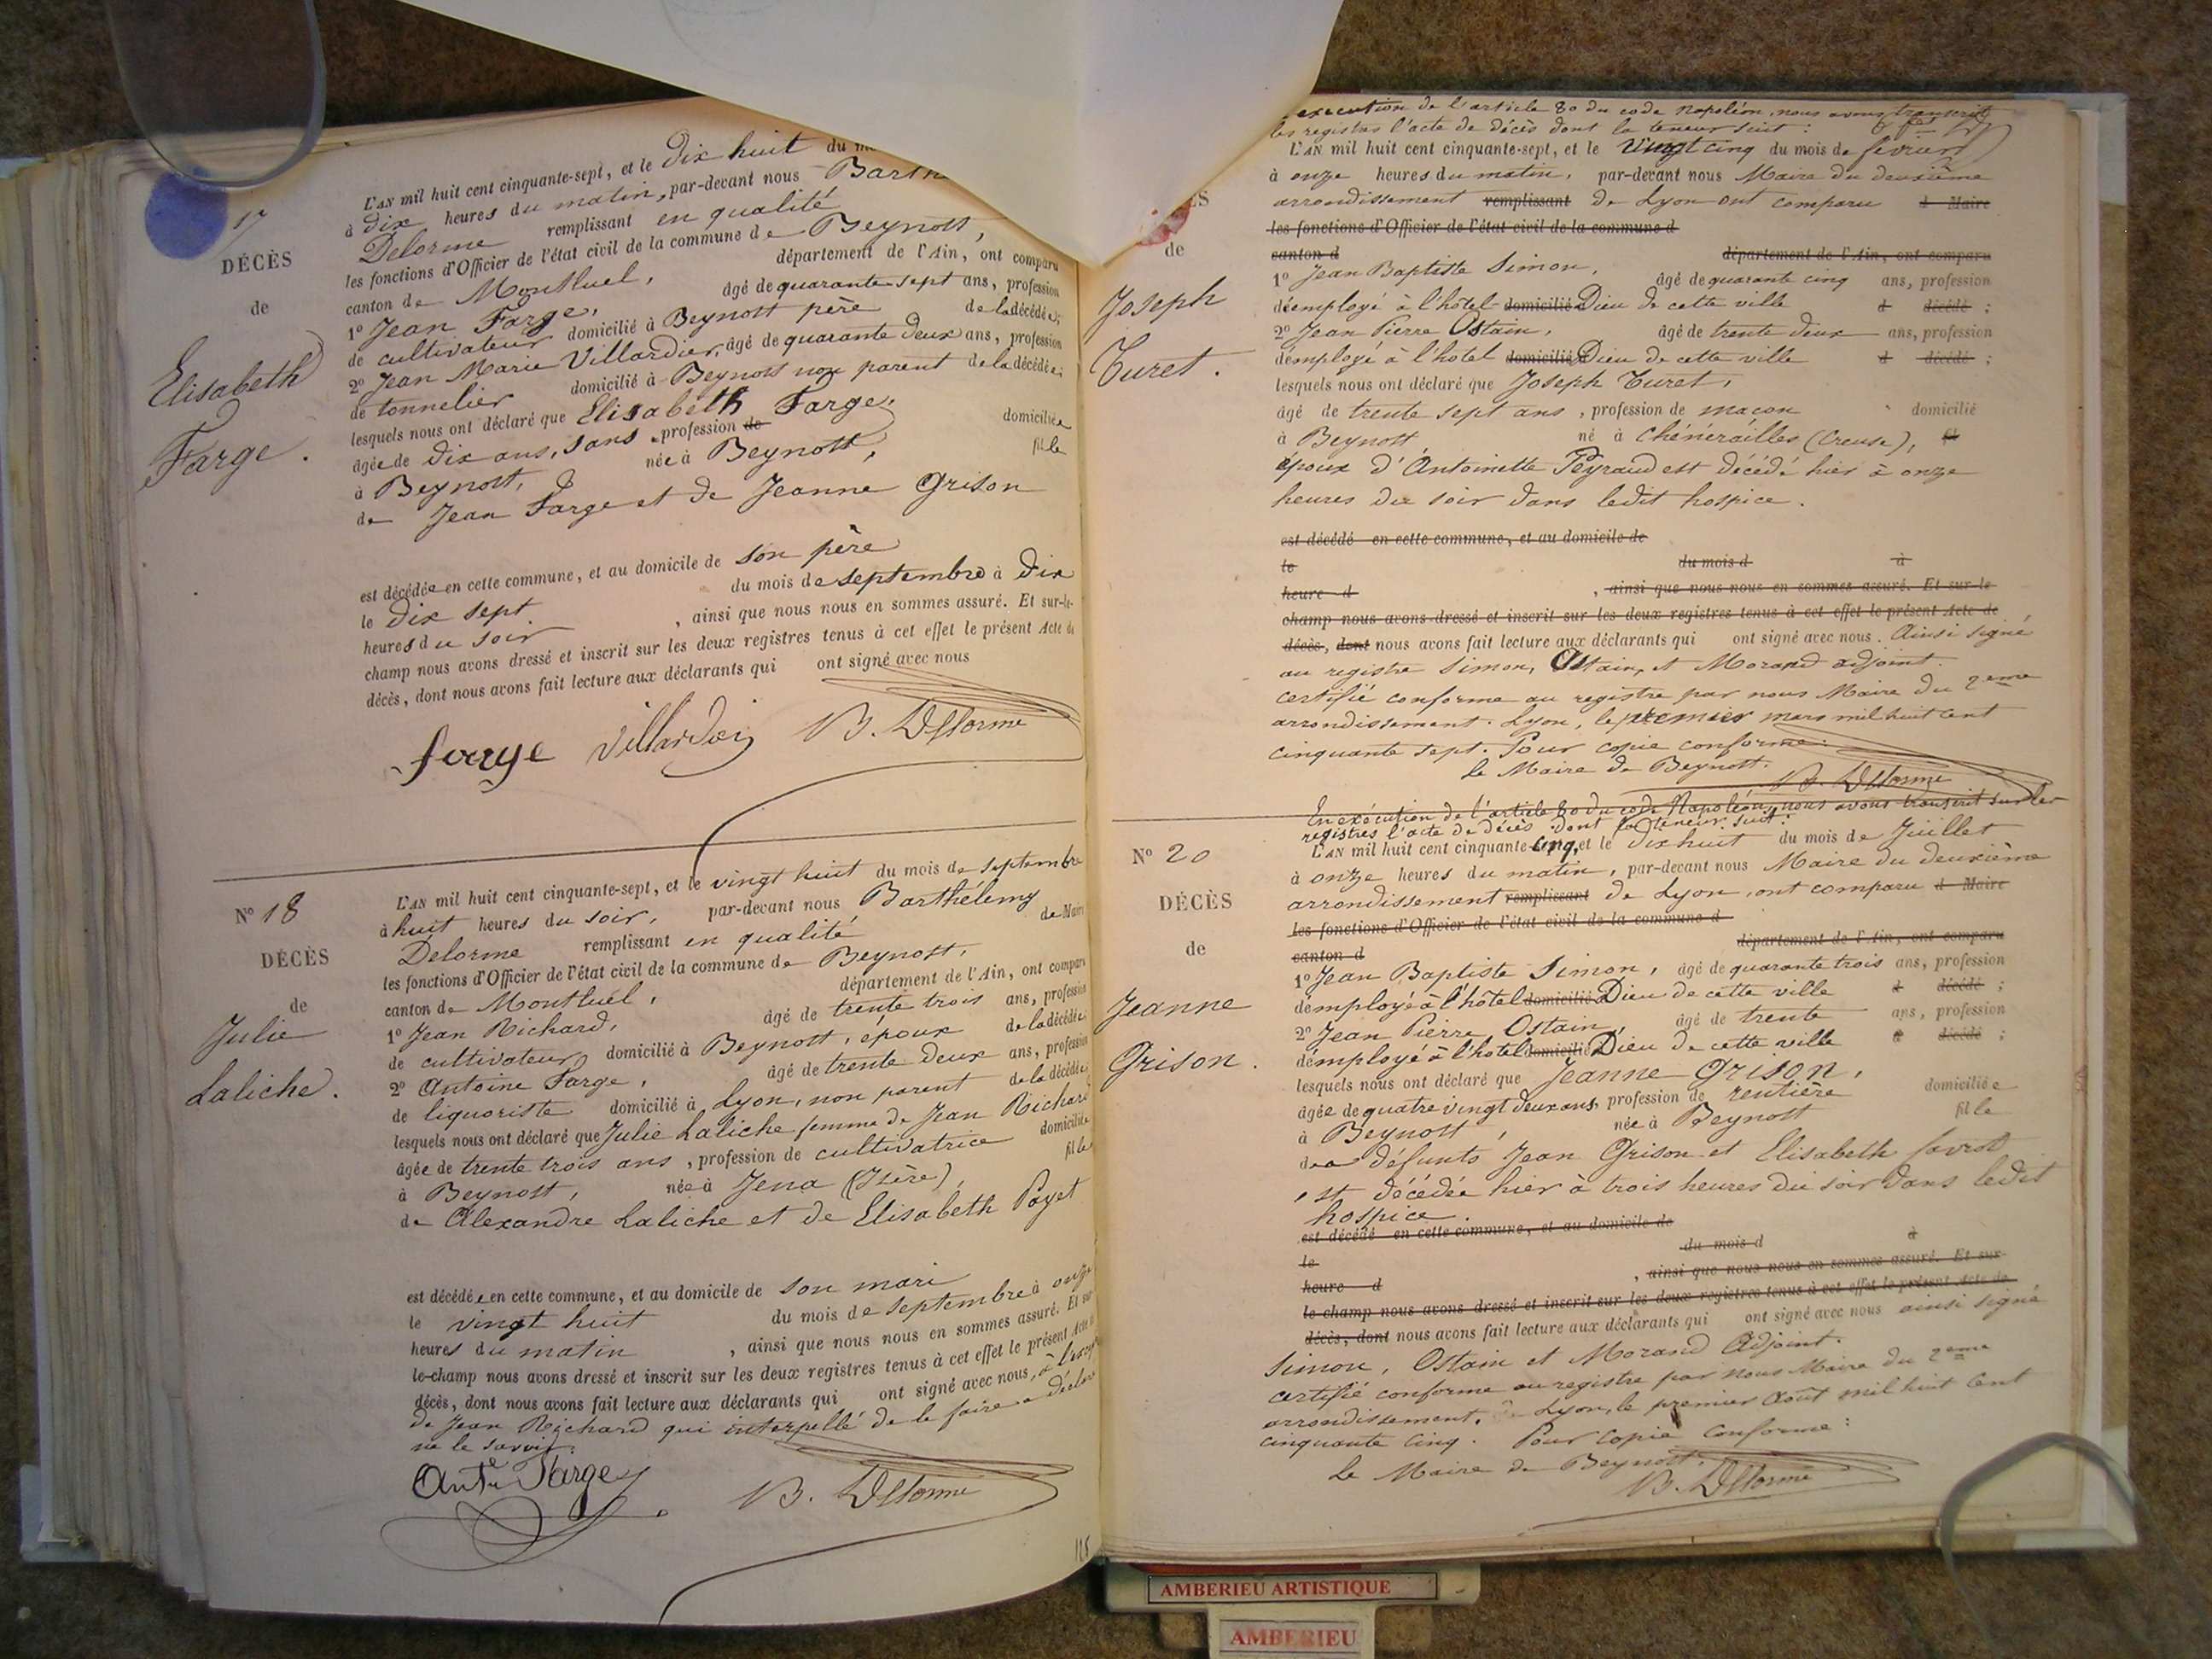 17
DÉCÈS
de
Elisabeth
Farge.
L'AN mil huit cent cinquante-sept, et le dix huit du
à dix heures du matin, par-devant nous
Delorme remplissant en qualité
les fonctions d'Officier de l'état civil de la commune de Beynost,
canton de Montluel, département de l'Ain, ont comparu
1º Jean Farge, âgé de quarante sept ans, profession
de cultivateur domicilié à Beynost père de la décédée;
2º Jean Marie Villardier, âgé de quarante deux ans, profession
de tonnelier domicilié à Beynost non parent de la décédée;
lesquels nous ont déclaré que Elisabeth Farge,
âgée de dix ans, sans profession de domiciliée
à Beynost, née à Beynost, fille
de Jean Farge et de Jeanne Grison
est décédée en cette commune, et au domicile de son père
le dix sept du mois de septembre à dix
heures du soir, ainsi que nous nous en sommes assuré. Et sur-le-
champ nous avons dressé et inscrit sur les deux registres tenus à cet effet le présent Acte de
décès, dont nous avons fait lecture aux déclarants qui ont signé avec nous
farge Villardier B. Delorme
Nº 18
DÉCÈS
de
Julie
Laliche.
L'AN mil huit cent cinquante-sept, et le vingt huit du mois de septembre
à huit heures du soir, par-devant nous Barthélemy
Delorme remplissant en qualité de Maire
les fonctions d'Officier de l'état civil de la commune de Beynost,
canton de Montluel, département de l'Ain, ont comparu
1º Jean Richard, âgé de trente trois ans, profession
de cultivateur domicilié à Beynost, époux de la décédée;
2º Antoine Farge, âgé de trente deux ans, profession
de liquoriste domicilié à Lyon, non parent de la décédée
lesquels nous ont déclaré que Julie Laliche femme de Jean Richard
âgée de trente trois ans, profession de cultivatrice domiciliée
à Beynost, née à Jena (Isère), fille
de Alexandre Laliche et de Elisabeth Payet
est décédée en cette commune, et au domicile de son mari
le vingt huit du mois de septembre à onze
heures du matin, ainsi que nous nous en sommes assuré. Et sur
le-champ nous avons dressé et inscrit sur les deux registres tenus à cet effet le présent Acte de
décès, dont nous avons fait lecture aux déclarants qui ont signé avec nous, à
de Jean Richard qui interpellé de le faire a déclaré
ne le savoir.
Ant.ne Farge B. Delorme
118
de
Joseph
Turet.
execution de l'article 80 du code Napoléon, nous avons transcrit
les registres l'acte de décès dont la teneur suit:
L'AN mil huit cent cinquante-sept, et le vingt cinq du mois de fevrier
à onze heures du matin, par-devant nous Maire du deuxième
arrondissement remplissant de Lyon ont comparu d Maire
les fonctions d'Officier de l'état civil de la commune d
canton d département de l'Ain, ont comparu
1º Jean Baptiste Simon, âgé de quarante cinq ans, profession
d'employé à l'hôtel domicilié à Dieu de cette ville d décédé;
2º Jean Pierre Ostain, âgé de trente deux ans, profession
d'employé à l'hotel domicilié à Dieu de cette ville d décédé;
lesquels nous ont déclaré que Joseph Turet,
âgé de trente sept ans, profession de maçon domicilié
à Beynost né à Chénérailles (Creuse), fil
époux d'Antoinette Peyraud est décédé hier à onze
heures du soir dans ledit hospice.
est décédé en cette commune, et au domicile de
le du mois d à
heure d, ainsi que nous nous en sommes assuré. Et sur-le
champ nous avons dressé et inscrit sur les deux registres tenus à cet effet le présent Acte de
décès, dont nous avons fait lecture aux déclarants qui ont signé avec nous. Ainsi signé
au registre Simon, Ostain, et Morand adjoint.
certifié conforme au registre par nous Maire du 2eme
arrondissement. Lyon, le premier mars mil huit cent
cinquante sept. Pour copie conforme:
Le Maire de Beynost.
B. Delorme
Nº 20
DÉCÈS
de
Jeanne
Grison.
En exécution de l'article 80 du code Napoléon, nous avons transcrit sur les
registres l'acte de décès dont la teneur suit:
L'AN mil huit cent cinquante-cinq, et le dix huit du mois de Juillet
à onze heures du matin, par-devant nous Maire du deuxième
arrondissement remplissant de Lyon, ont comparu d Maire
les fonctions d'Officier de l'état civil de la commune d
canton d département de l'Ain, ont comparu
1º Jean Baptiste Simon, âgé de quarante trois ans, profession
d'employé à l'hôtel domicilié à Dieu de cette ville d décédé;
2º Jean Pierre Ostain, âgé de trente ans, profession
d'employé à l'hotel domicilié à Dieu de cette ville d décédé;
lesquels nous ont déclaré que Jeanne Grison,
âgée de quatre vingt deux ans, profession de rentière domiciliée
à Beynost, née à Beynost fille
des défunts Jean Grison et Elisabeth favrot
est décédée hier à trois heures du soir dans ledit
hospice.
est décédé en cette commune, et au domicile de
le du mois d à
heure d, ainsi que nous nous en sommes assuré. Et sur
le champ nous avons dressé et inscrit sur les deux registres tenus à cet effet le présent Acte de
décès, dont nous avons fait lecture aux déclarants qui ont signé avec nous ainsi signé
Simon, Ostain et Morand Adjoint.
certifié conforme au registre par nous Maire du 2eme
arrondissement. Lyon, le premier Août mil huit cent
cinquante cinq. Pour copie conforme:
Le Maire de Beynost.
B. Delorme
AMBERIEU ARTISTIQUE
AMBERIEU